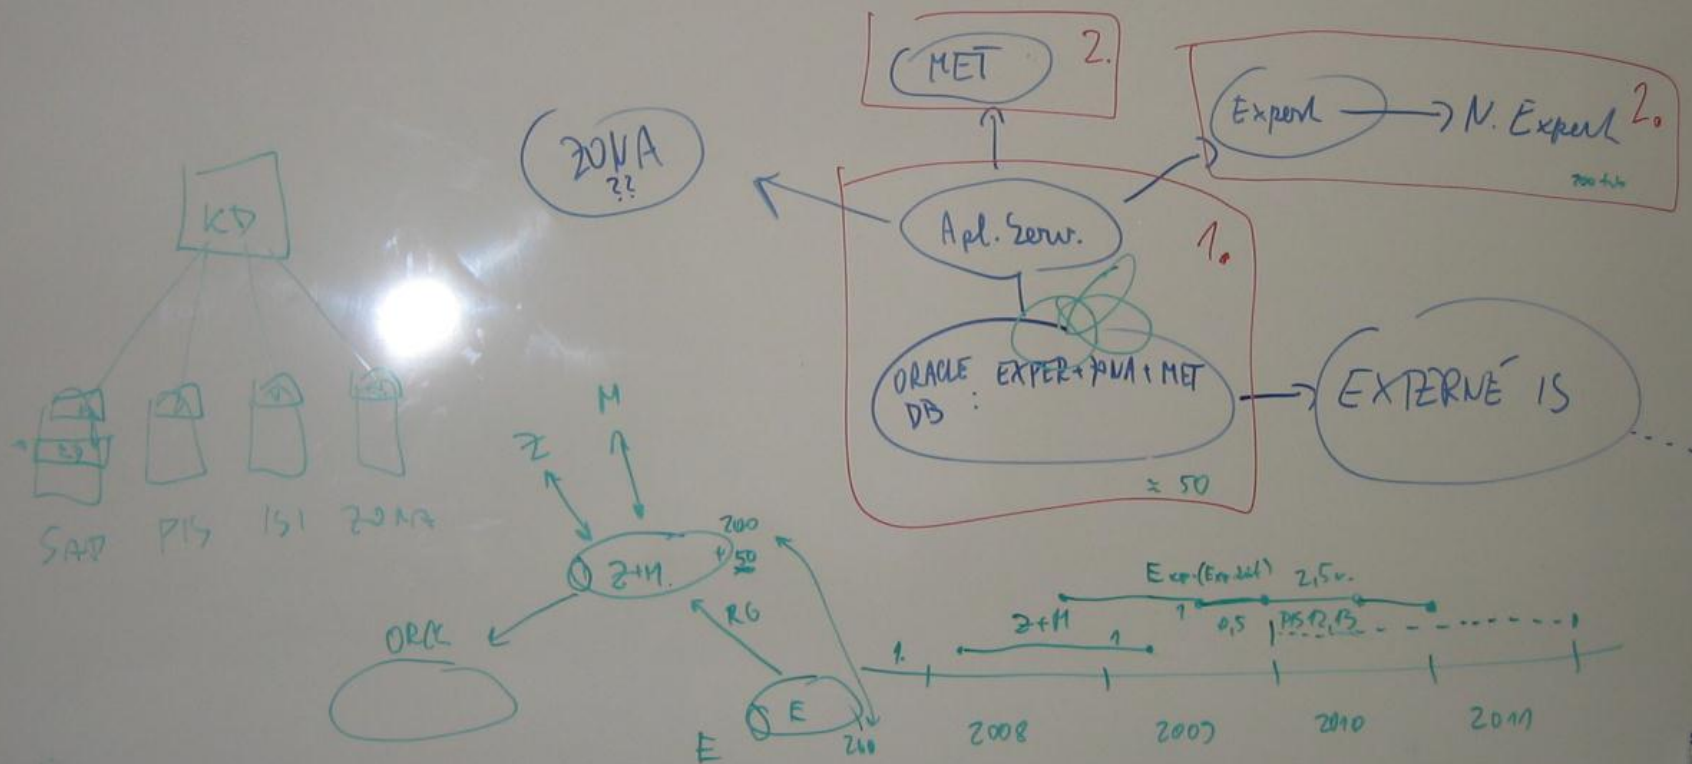 MET
2.
Expert
N. Expert
2.
ZONA
??
KD
Apl. Serv.
1.
ORACLE EXPER+ZONA+MET
DB :
EXTERNÉ IS
≈ 50
SAP
PIS
ISI
ZONA
M
Z
200
+ 50
Z+M.
RG
ORCL
E
E
240
2,5r.
Z+M
1
1
0,5
PIS 12,13
1.
2008
2009
2010
2011